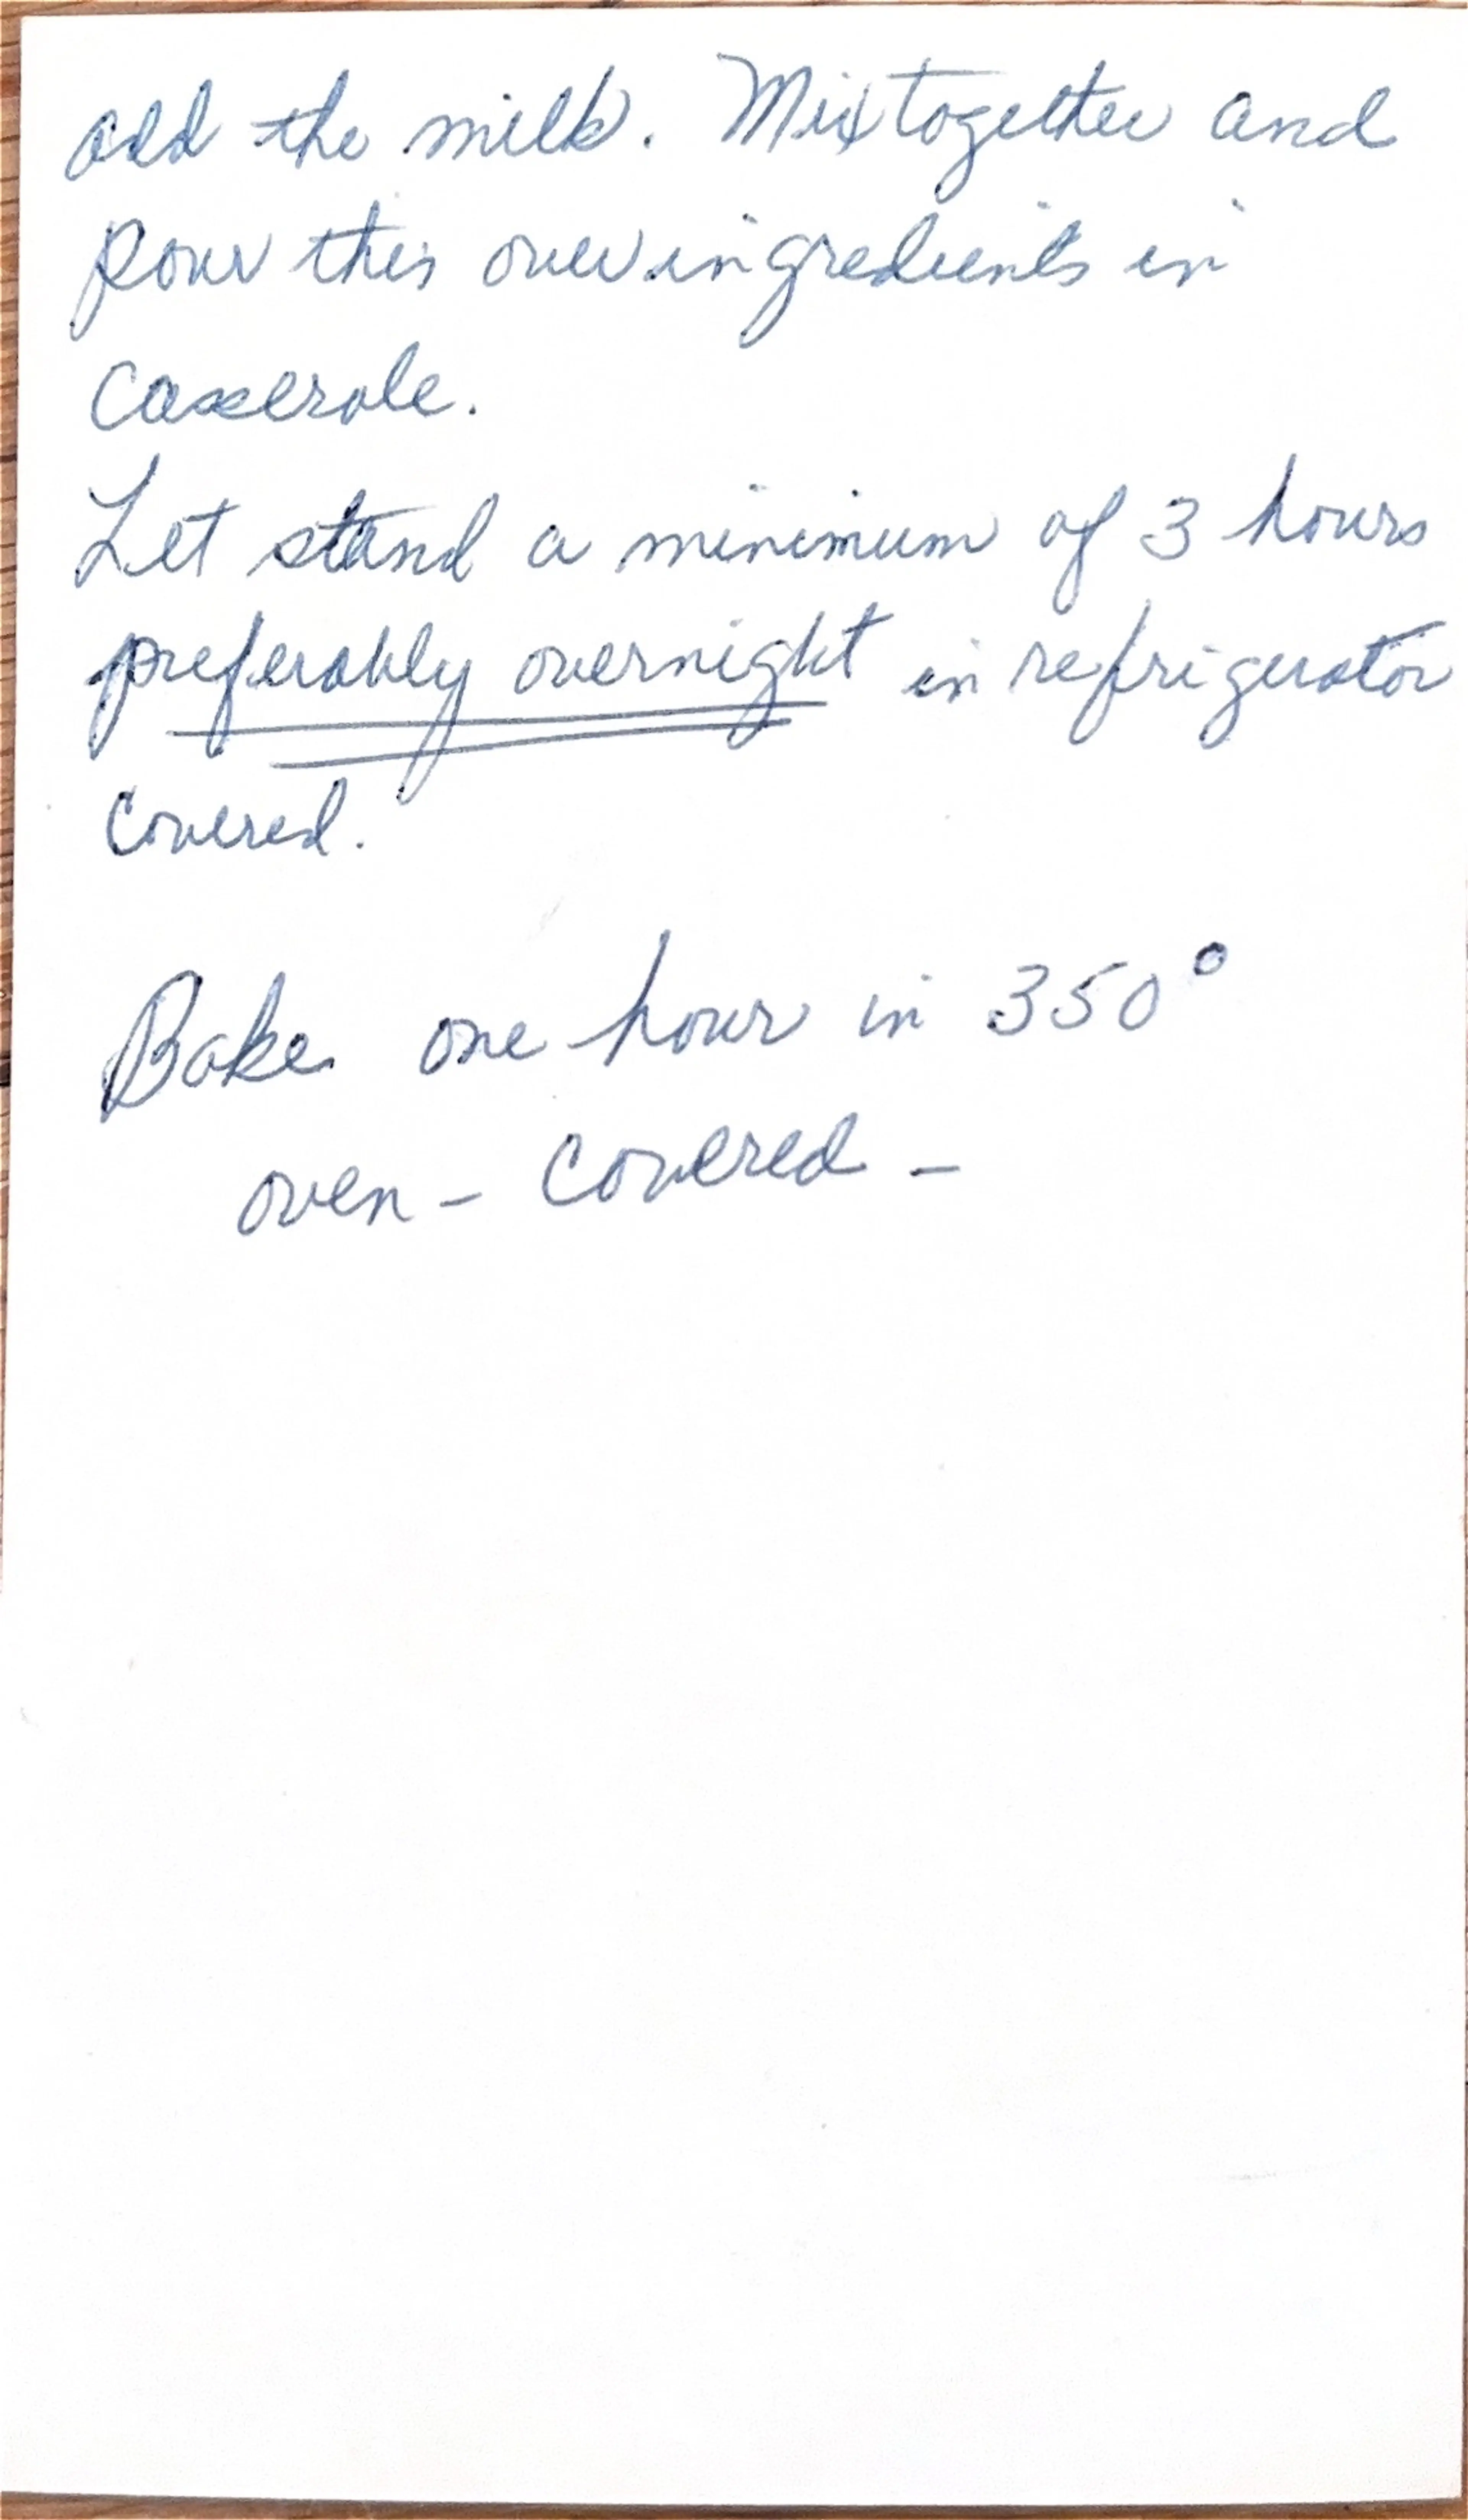 add the milk. Mix together and
pour this over ingredients in
casserole.
Let stand a minimum of 3 hours
preferably overnight in refrigerator
covered.
Bake one hour in 350°
oven - covered -